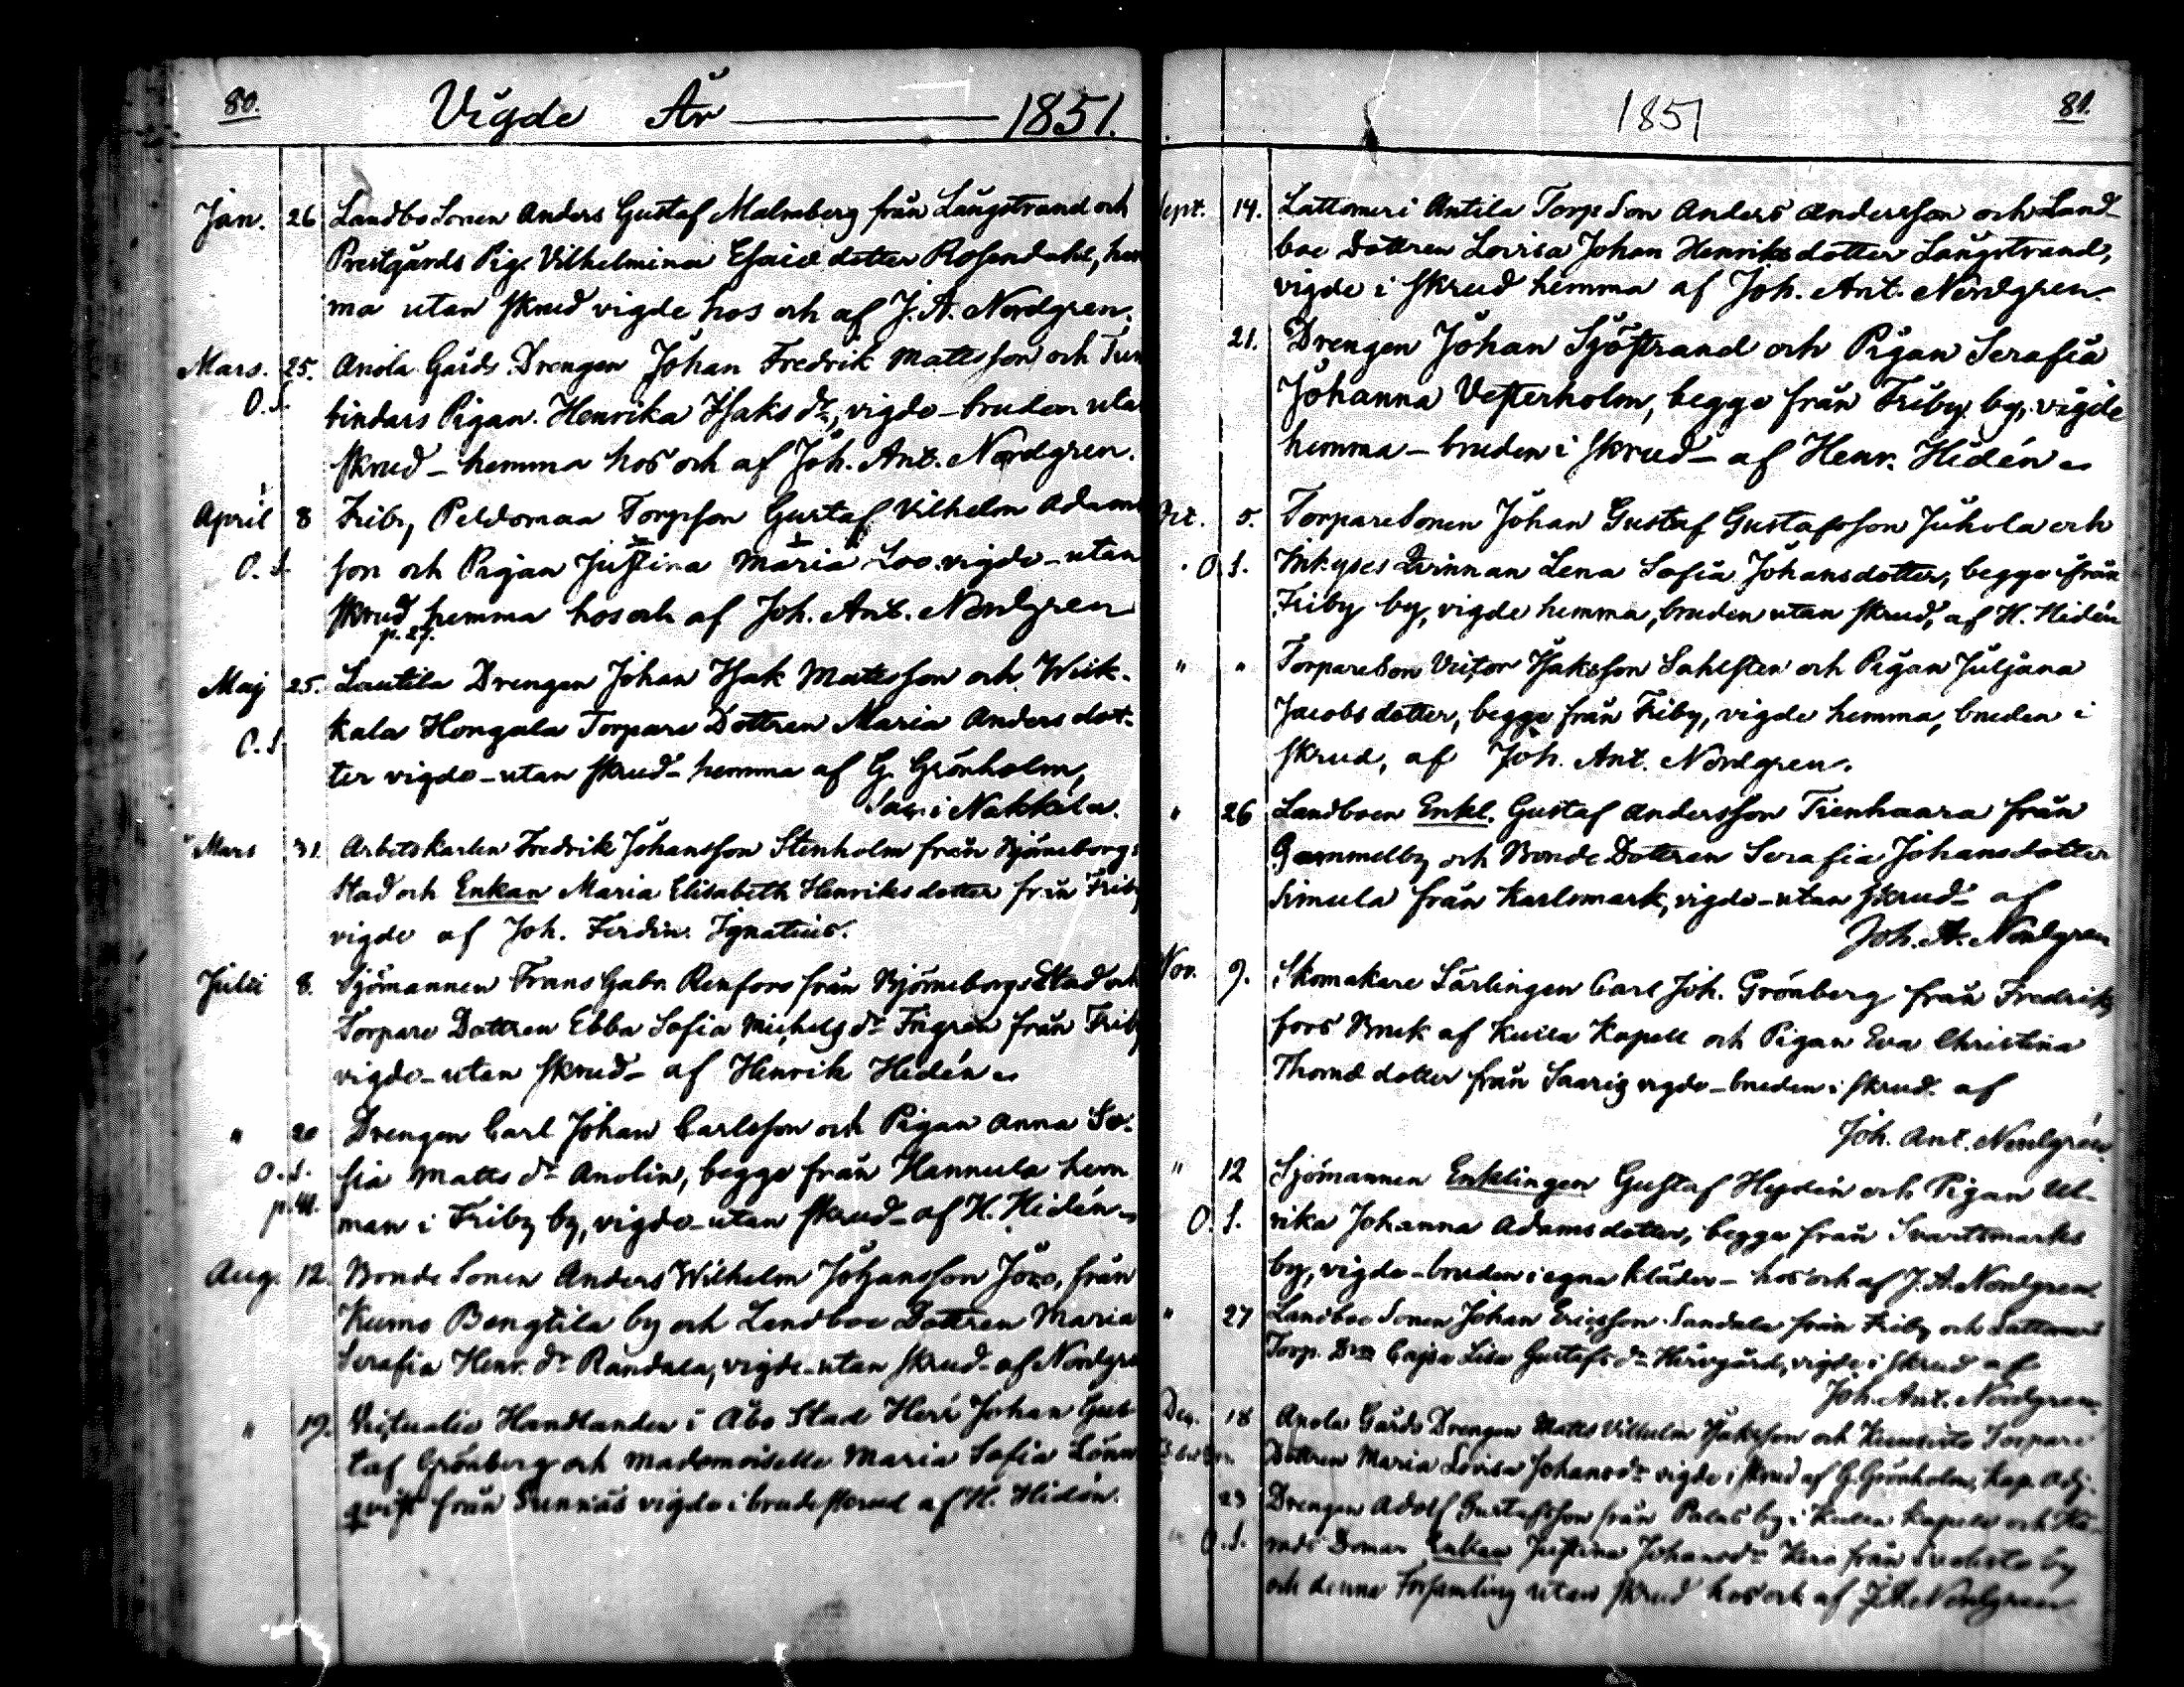 80.
Vigde År 1851.
Jan. 26 Landbo Sonen Anders Gustaf Malmberg från Långstrand och
Prestgårds Pig. Vilhelmina Esaiæ dotter Rosendahl, hem
ma utan skrud vigde hos och af J. A. Nordgren.
Mars. 25. Anola Gårds Drengen Johan Fredrik Mattsson och Tun
O.S. bindars Pigan Henrika Isaks dr, vigde - bruden utan
skrud - hemma hos och af Joh. Ant. Nordgren.
April 8 Friby, Peldomaa Torpson Gustaf Vilhelm Adams
O.S. son och Pigan Justina Maria Loo. vigde - utan
skrud hemma hos och af Joh. Ant. Nordgren
p. 27.
Maj 25. Lautila Drengen Johan Isak Mattsson och Wiik-
kala Hongala Torpare Dottren Maria Anders dot-
O.S. ter vigde - utan skrud - hemma af G. Grönholm,
i Nakkila.
Mars 31 Arbetskarlen Fredrik Johansson Stenholm från Björneborgs
Stad och Enkan Maria Elisabeth Henriksdotter från Friby
vigde af Joh. Ferdin. Ignatius.
Julii 8. Sjömannen Frans Gabr. Renfors från Björneborgs Stad och
Torpare Dottren Ebba Sofia Michels dr Frigren från Friby
vigde - utan skrud - af Henrik Hedén
" 20 Drengen Carl Johan Carlsson och Pigan Anna So-
O.S. fia Matts dr Anolin, begge från Hannula hem
p.41. man i Friby by, vigde - utan skrud - af H. Hidén
Aug. 12. Bonde Sonen Anders Wilhelm Johansson från
Kumo Bengtila by och Landboe Dottren Maria
Serafia Henr. dr Randala, vigde - utan skrud - af Nordgre
" 19. Victualie Handlanden i Åbo Stad Herr Johan Gus
taf Grönberg och Mademoiselle Maria Sofia Lönn
qvist från Sunnäs vigde i brudeskrud af H. Hidén.
1851
81.
Sept. 14. Lattomeri Antila Torp Son Anders Andersson och Land-
boe Dottren Lovisa Johan Henriksdotter Långstrand,
vigde i skrud hemma af Joh. Ant. Nordgren.
21. Drengen Johan Sjöstrand och Pigan Serafia
Johanna Vesterholm, begge från Friby by, vigde
hemma - bruden i skrud - af Henr. Hidén
Oct. 5. Torpare Sonen Johan Gustaf Gustafsson Juhola och
O.S. Inhyses Qvinnan Lena Sofia Johansdotter, begge från
Friby by, vigde hemma, bruden utan skrud, af H. Hidén
" " Torpare Son Victor Isaksson Sahlsten och Pigan Juljana
Jacobs dotter, begge från Friby, vigde hemma, bruden i
skrud, af Joh. Ant. Nordgren.
" 26 Landboen Enkl. Gustaf Andersson Tienhaara från
Gammelby och Bonde Dottren Serafia Johansdotter
Simula från Karlsmark, vigde - utan skrud - af
Joh. A. Nordgren
Nov. 9. Skomakare Lärlingen Carl Joh. Grönberg från Fredriks
fors Bruk af Kulla Kapell och Pigan Eva Christina
Thomæ dotter från vigde - bruden i skrud - af
Joh. Ant. Nordgrén.
" 12 Sjömannen Enklingen Gustaf Hydén och Pigan Ul-
O.S. rika Johanna Adamsdotter, begge från Svartsmarks
by, vigde - bruden i egna kläder - hos och af J. A. Nordgren.
" 27 Landboe Sonen Johan Ericsson Sandala från Friby och
Torp. Dr Cajsa Lisa Gustafs dr vigde i skrud af
Joh. Ant. Nordgren.
Dec. 18 Anola Gårds Drengen Matts Vilhelm Isaksson och Torpare
Dottren Maria Lovisa Johans dr vigde i skrud af G. Grönholm, Kap. Adj.
23 Drengen Adolf Gustafsson från Palus by i Kulla Kapell och
O.S. Enkan Justina Johans dr från by
och denna Församling utan skrud hos och af J. A. Nordgren